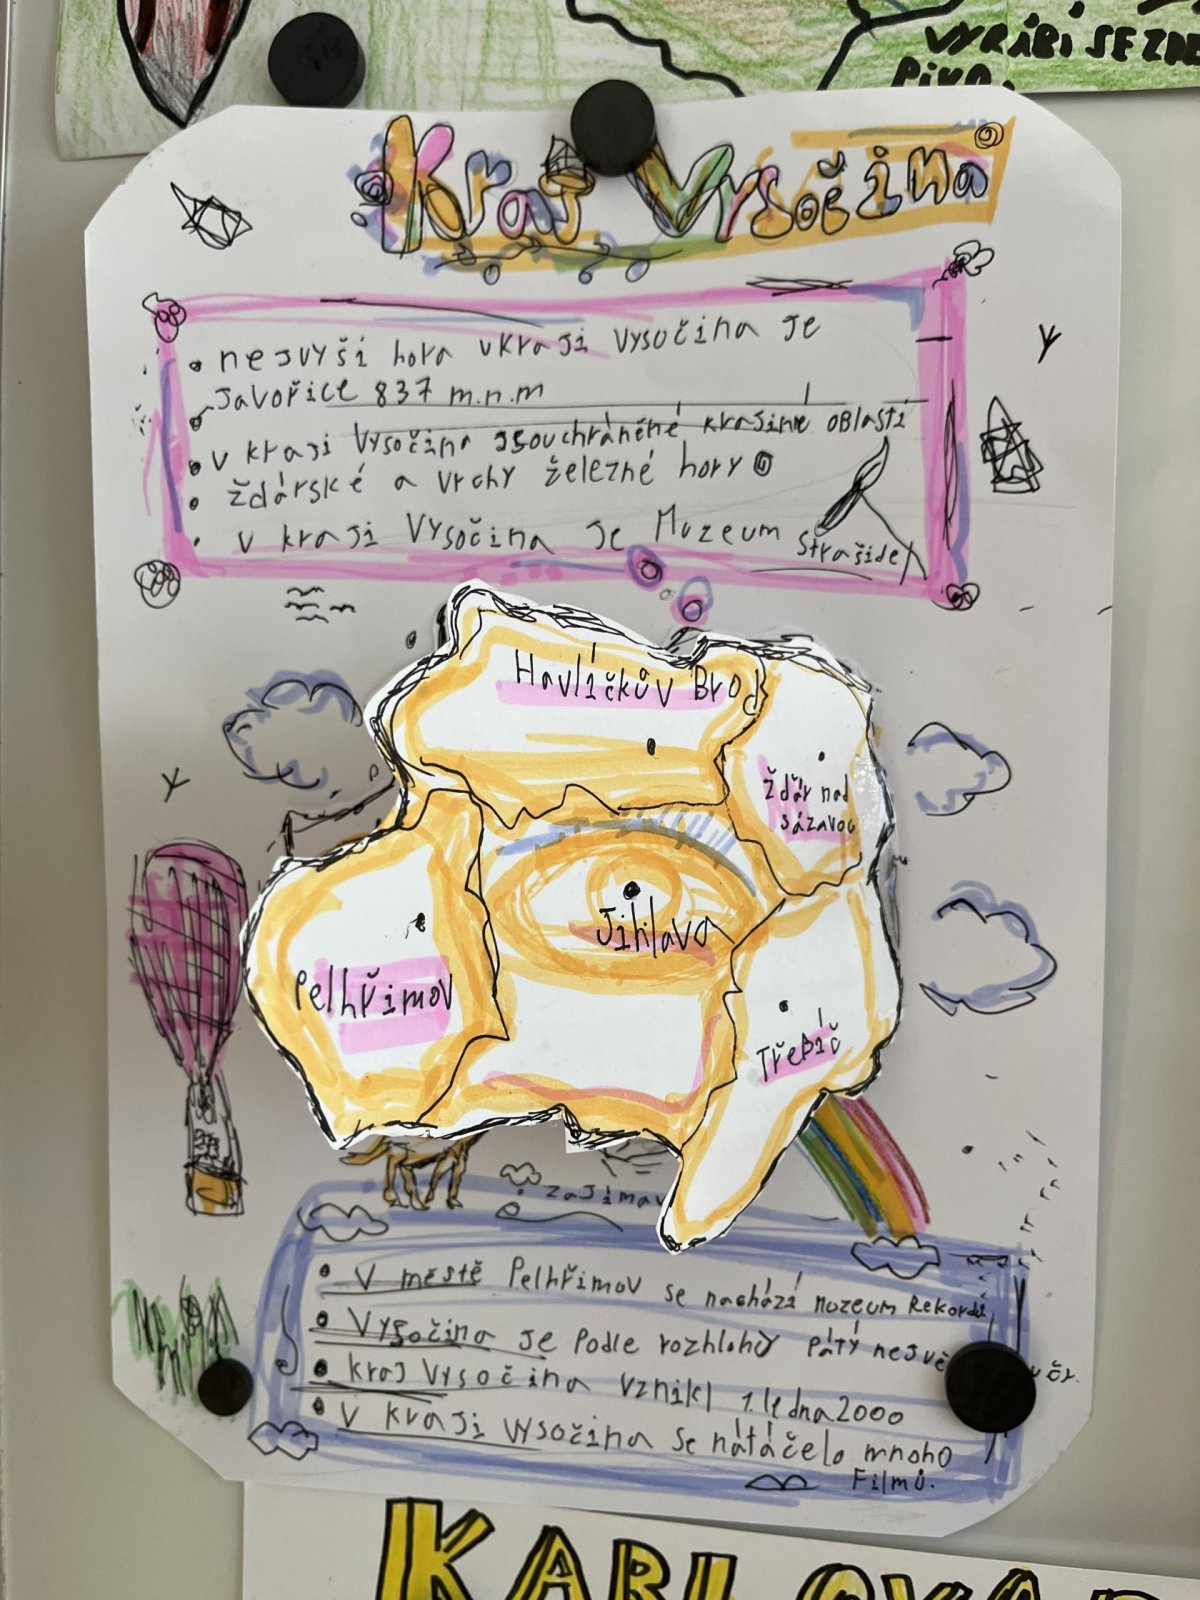 VYRÁBÍ SE ZDE
PIVO.
Kraj Vysočina
• nejvyší hora vkraji vysočina je
Javořice 837 m.n.m
• v kraji Vysočina jsou chráněné krasinné oblastí
• žďárské a vrchy železné hory
• v kraji Vysočina je Muzeum Strašidel
Havlíčkův Brod
Žďár nad
sázavou
Jihlava
Pelhřimov
Třebíč
zajímav
• V městě Pelhřimov se nachází muzeum Rekordů
• Vysočina je Podle rozhlohy pátý nejvě
• kraj Vysočina vznikl 1. ledna 2000
• V kraji vysočina se nátáčelo mnoho
Filmů.
KARLOVAR